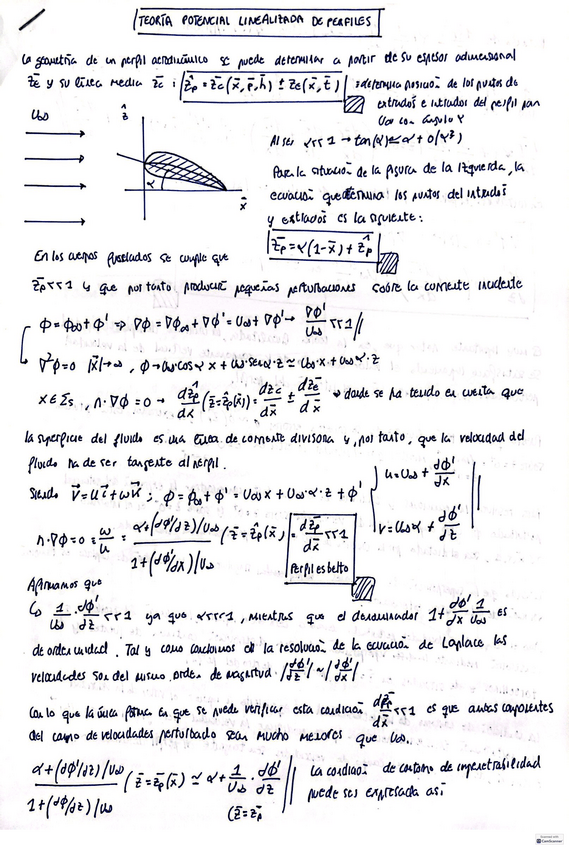 TEORÍA POTENCIAL LINEALIZADA DE PERFILES
La geometría de un perfil aerodinámico se puede determinar a partir de su espesor adimensional
z̄e y su línea media z̄c : ẑp = z̄c(x̄, p̄, h̄) ± z̄e(x̄, t̄) : determina posición de los puntos de
extrados e intrados del perfil para
U∞ con ángulo α
U∞
ẑ
α
x̄
Al ser α<<1 → tan(α) ≃ α + O(α³)
Para la situación de la figura de la izquierda, la
ecuación que determina los puntos del intradós
y extrados es la siguiente:
z̄p = α(1-x̄) + ẑp
En los cuerpos fuselados se cumple que
z̄p<<1 y que por tanto producirán pequeñas perturbaciones sobre la corriente incidente
Φ = Φ∞ + Φ' ⇒ ∇Φ = ∇Φ∞ + ∇Φ' = U∞ + ∇Φ' → ∇Φ'/U∞ <<1
∇²Φ=0 |x̄|→∞, Φ→U∞ cos α x + U∞ sen α·z ≃ U∞·x + U∞ α·z
x∈Σs, n·∇Φ=0 → dẑp/dx (z̄=ẑp(x̄)) = dz̄c/dx̄ ± dz̄e/dx̄ → donde se ha tenido en cuenta que
la superficie del fluido es una línea de corriente divisora y, por tanto, que la velocidad del
fluido ha de ser tangente al perfil.
Siendo v⃗ = u i⃗ + ω k⃗ ; Φ = Φ∞ + Φ' = U∞ x + U∞·α·z + Φ'
u = U∞ + dΦ'/dx
v = U∞α + dΦ'/dz
n·∇Φ=0 = ω/u = α+(dΦ'/dz)/U∞ / 1+(dΦ'/dx)/U∞ (z̄=ẑp(x̄)) = dz̄p/dx̄ <<1
Perfil esbelto
Afirmamos que
↳ 1/U∞ · dΦ'/dz <<1 ya que α<<<1, mientras que el denominador 1+ dΦ'/dx 1/U∞ es
de orden unidad. Tal y como concluimos de la resolución de la ecuación de Laplace las
velocidades son del mismo orden de magnitud |dΦ'/dz| ~ |dΦ'/dx|
Con lo que la única forma en que se puede verificar esta condición dz̄p/dx̄ <<1 es que ambas componentes
del campo de velocidades perturbado sean mucho menores que U∞.
α+(dΦ'/dz)/U∞ / 1+(dΦ/dz)/U∞ (z̄=z̄p(x̄)) ≃ α + 1/U∞ · dΦ'/dz (z̄=z̄p
La condición de contorno de impenetrabilidad
puede ser expresada así
CamScanner